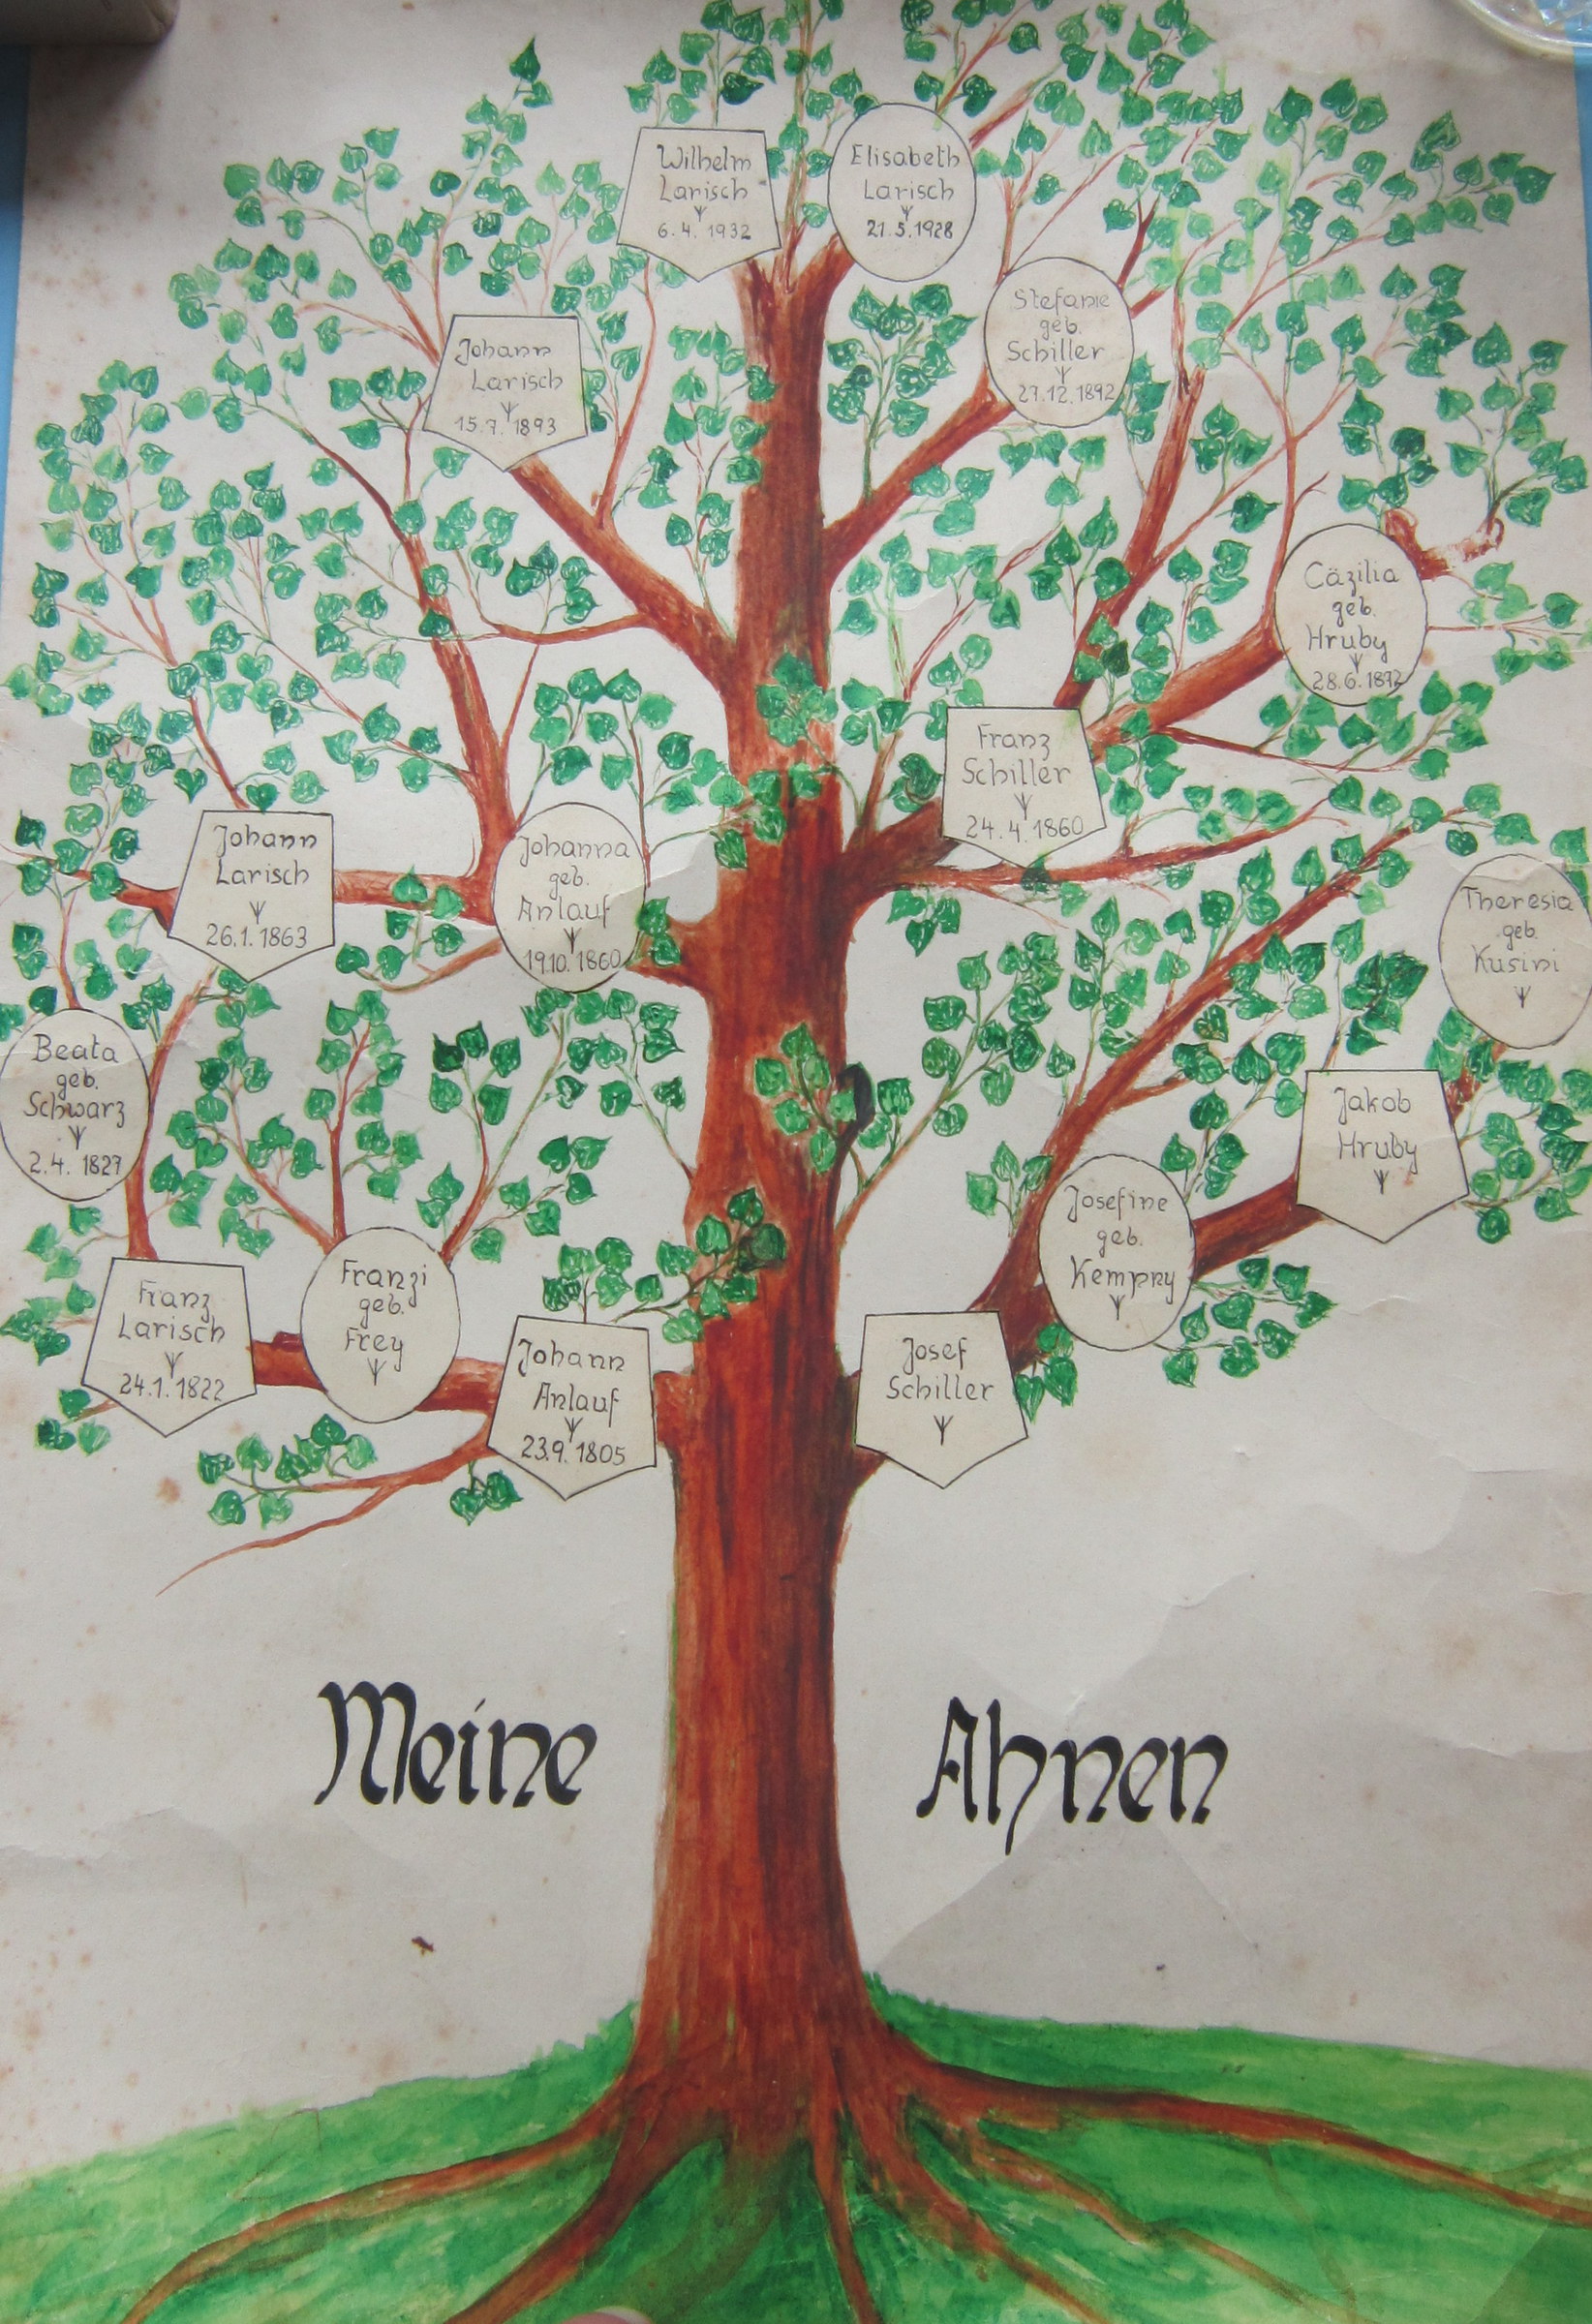 Wilhelm
Larisch
ᛉ
6.4.1932
Elisabeth
Larisch
ᛉ
21.5.1928
Johann
Larisch
ᛉ
15.7.1893
Stefanie
geb.
Schiller
ᛉ
27.12.1892
Cäzilia
geb.
Hruby
ᛉ
28.6.1872
Franz
Schiller
ᛉ
24.4.1860
Johann
Larisch
ᛉ
26.1.1863
Johanna
geb.
Anlauf
ᛉ
19.10.1860
Theresia
geb.
Kusini
ᛉ
Beata
geb.
Schwarz
ᛉ
2.4.1827
Jakob
Hruby
ᛉ
Josefine
geb.
Kempny
ᛉ
Franz
Larisch
ᛉ
24.1.1822
Franzi
geb.
Frey
ᛉ
Johann
Anlauf
ᛉ
23.9.1805
Josef
Schiller
ᛉ
Meine Ahnen